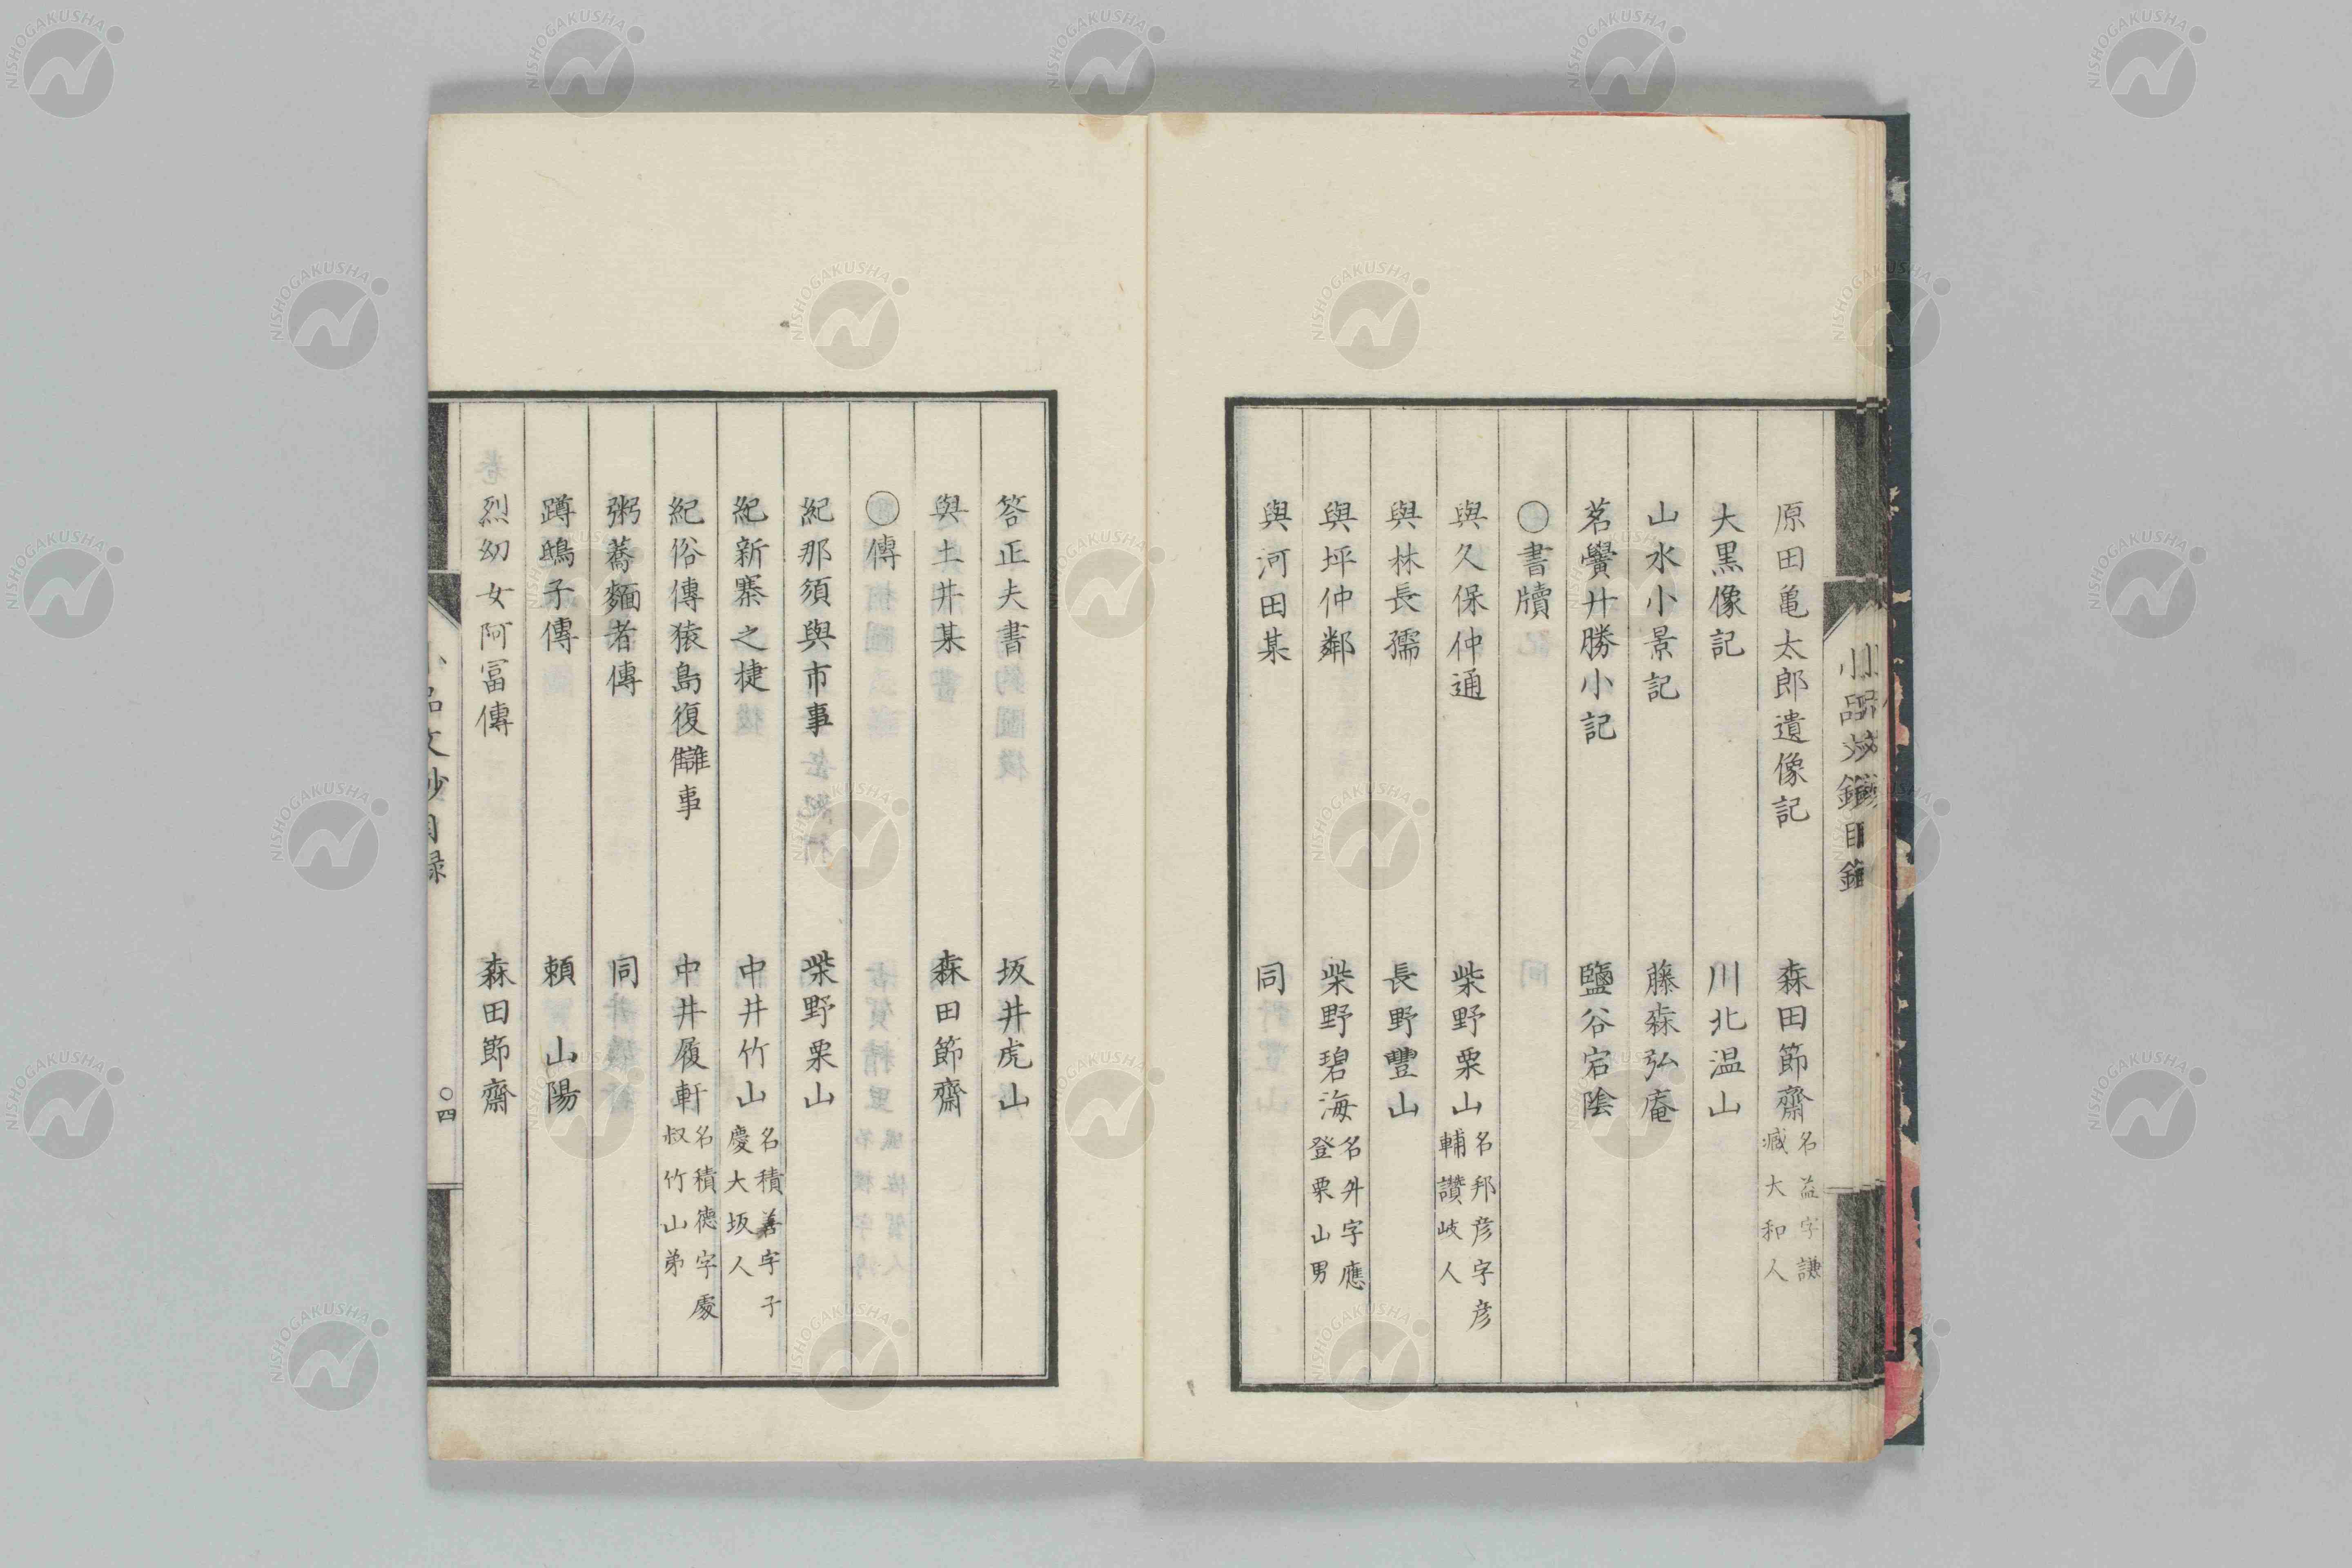 原田亀太郎遺像記　森田節齋 名益字謙臧大和人
大黒像記　川北温山
山水小景記　藤森弘庵
茗黌廾勝小記　鹽谷宕陰
○書牘
與久保仲通　柴野栗山 名邦彦字彦輔讃岐人
與林長孺　長野豐山
與坪仲鄰　柴野碧海 名升字應登栗山男
與河田某　同
答正夫書　坂井虎山
與土井某　森田節齋
○傳
紀那須與市事　柴野栗山
紀新寨之捷　中井竹山 名積善字子慶大坂人
紀俗傳猿島復讎事　中井履軒 名積德字處叔竹山弟
粥蕎麵者傳　同
蹲鴟子傳　頼山陽
烈幼女阿冨傳　森田節齋
小品文鈔目録
○四
NISHOGAKUSHA